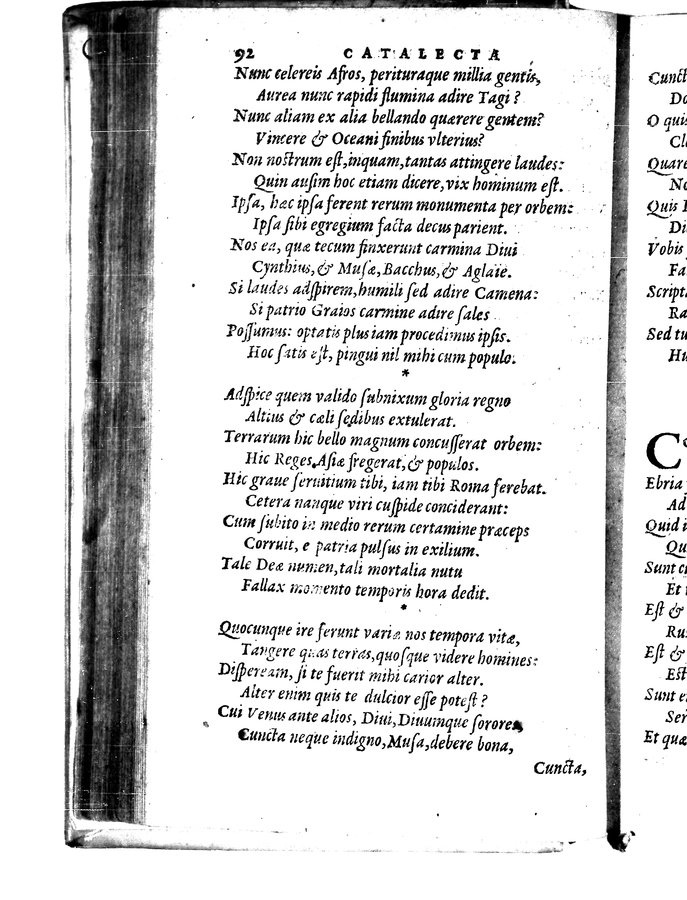 92 CATALECTA
Nunc celereis Afros, perituraque millia gentis,
Aurea nunc rapidi flumina adire Tagi?
Nunc aliam ex alia bellando quærere gentem?
Vincere & Oceani finibus vlterius?
Non nostrum eſt,inquam,tantas attingere laudes:
Quin auſim hoc etiam dicere,vix hominum eſt.
Ipſa, hæc ipſa ferent rerum monumenta per orbem:
Ipſa ſibi egregium facta decus parient.
Nos ea, quæ tecum finxerunt carmina Diui
Cynthius,& Muſæ,Bacchus,& Aglaie.
Si laudes adſpirem,humili ſed adire Camena:
Si patrio Graios carmine adire ſales
Poſſumus: optatis plus iam procedimus ipſis.
Hoc ſatis eſt, pingui nil mihi cum populo.
*
Adſpice quem valido ſubnixum gloria regno
Altius & cæli ſedibus extulerat.
Terrarum hic bello magnum concuſſerat orbem:
Hic Reges Aſiæ fregerat,& populos.
Hic graue ſeruitium tibi, iam tibi Roma ferebat.
Cetera nanque viri cuſpide conciderant:
Cum ſubito in medio rerum certamine præceps
Corruit, e patria pulſus in exilium.
Tale Deæ numen,tali mortalia nutu
Fallax momento temporis hora dedit.
*
Quocunque ire ferunt variæ nos tempora vitæ,
Tangere quas terras,quoſque videre homines:
Diſpeream, ſi te fuerit mihi carior alter.
Alter enim quis te dulcior eſſe poteſt?
Cui Venus ante alios, Diui,Diuumque ſorores,
Cuncta neque indigno,Muſa,debere bona,
Cuncta,
Cunct
Do
O quis
Cl
Quare
Ne
Quis
Di
Vobis
Fa
Script
Ra
Sed tu
Hu
C
Ebria
Ad
Quid i
Qu
Sunt
Et
Eſt &
Ru
Eſt &
Eſt
Sunt
Ser
Et quæ